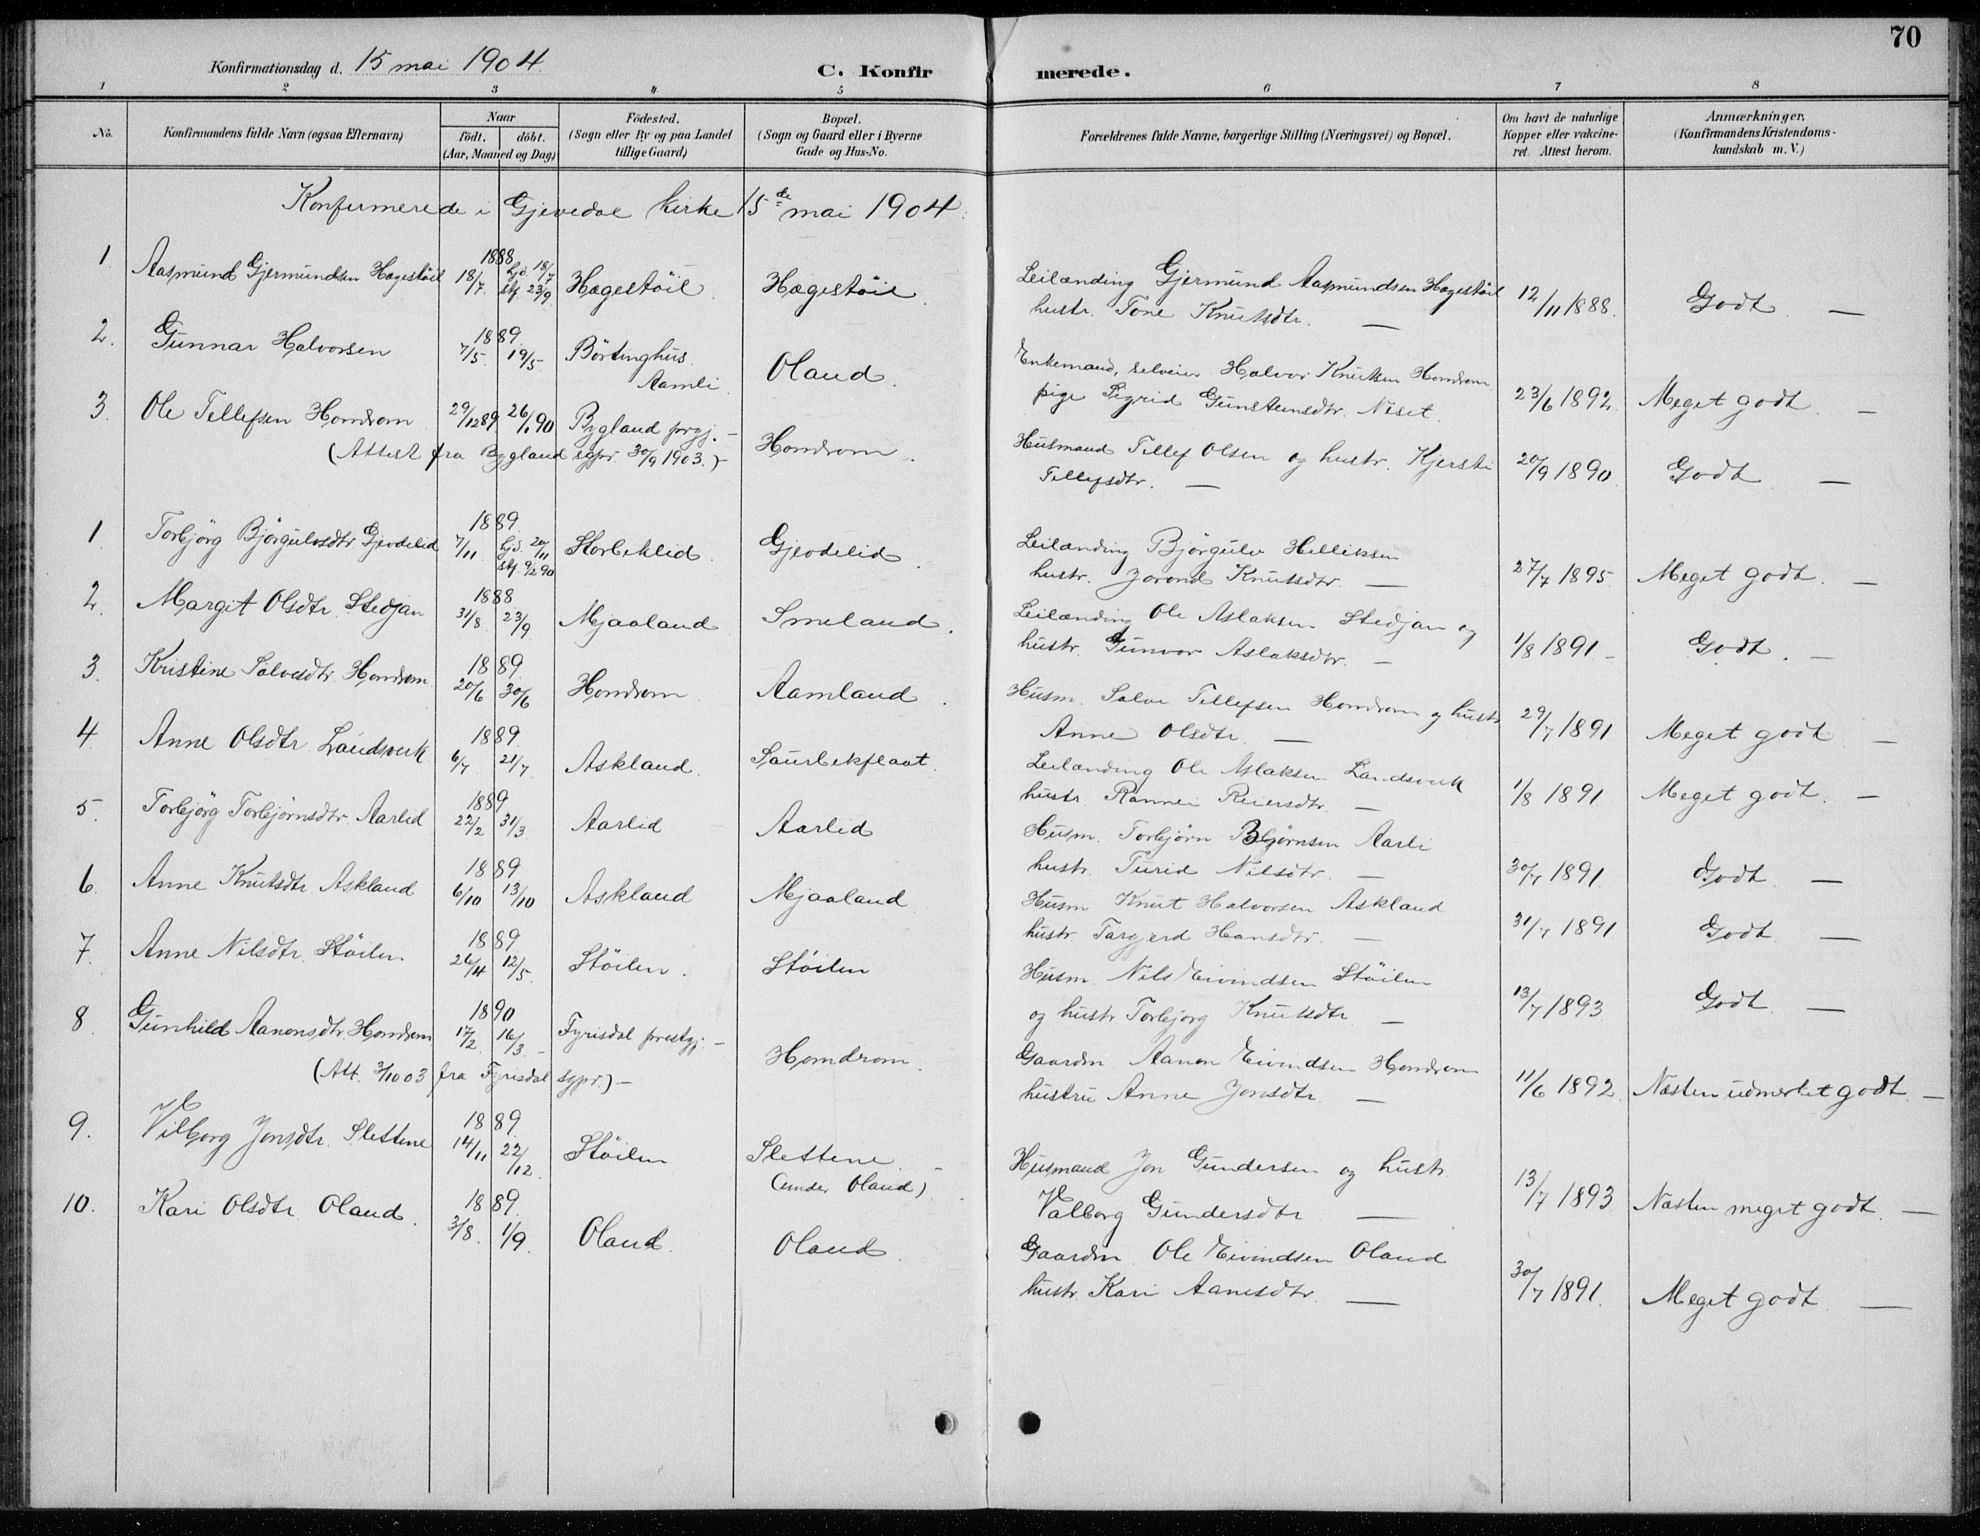 70
Konfirmationsdag d. 15 mai 1904.
C. Konfirmerede.
1 2 3 4 5 6 7 8
No.
Konfirmandens fulde Navn (ogsaa Efternavn)
Naar
født. døbt.
(Aar, Maaned og Dag)
Fødested.
(Sogn eller By og paa Landet
tillige Gaard)
Bopæl.
(Sogn og Gaard eller i Byerne
Gade og Hus-No.
Forældrenes fulde Navne, borgerlige Stilling (Næringsvei) og Bopæl.
Om havt de naturlige
Kopper eller vakcine-
ret. Attest herom.
Anmærkninger,
(Konfirmandens Kristendoms-
kundskab m. V.)
Konfirmerede i Gjevedal kirke 15de mai 1904.
1 Aasmund Gjermundsen Hægestøil 1888 18/7. hjd. 18/7 stf 23/9. Hægestøil. Hægestøil.
Leilænding Gjermund Aasmundsen Hægestøil
hustr. Tone Knutsdtr. — 12/11 1888. Godt. —
2. Gunnar Halvorsen 1889. 7/5. 19/5 Børtinghus. Aamli Oland.
Enkemand, selveier Halvor Knutsen Homdrom
pige Sigrid Gunsteinsdtr. Neset 23/6 1892. Meget godt. —
3. Ole Tellefsen Homdrom 29/12 89 26/1 90 Bygland prgj. — Homdrom.
(Attest fra Bygland sgpr. 30/9 1903.) —
Husmand Tellef Olsen og hustr. Kjersti
Tellefsdtr. — 20/9 1890. Godt. —
1. Torbjørg Bjørgulvsdtr. Gjevdelid 1889. 7/11 hjd. 20/11 stf. 9/2 90 Storbeklid. Gjevdelid.
Leilænding Bjørgulv Helliksen
hustr. Jorond Knutsdtr. — 27/7 1895. Meget godt. —
2. Margit Olsdtr. Stedjan 1888 31/8. 23/9. Mjaaland Smeland.
Leilænding Ole Aslaksen Stedjan og
hustr. Gunvor Aslaksdtr. — 1/8 1891 — Godt. —
3. Kristine Salvesdtr. Homdrom 1889. 20/6 30/6 Homdrom. Aamland.
Husm. Salve Tellefsen Homdrom og hustr
Anne Olsdtr. — 29/7 1891 Meget godt. —
4. Anne Olsdtr. Landsverk 1889. 6/7. 21/7 Askland. Saurbekflaat.
Leilænding Ole Aslaksen Landsverk
hustr. Rannei Reiersdtr. — 1/8 1891. Meget godt. —
5. Torbjørg Torbjørnsdtr. Aarlid 1889. 22/2 31/3 Aarlid Aarlid
Husm. Torbjørn Bjørnsen Aarli
hustr. Turid Nilsdtr. — 30/7 1891. Godt. —
6. Anne Knutsdtr. Askland 1889 6/10 13/10 Askland Mjaaland
Husm. Knut Halvorsen Askland
hustr. Targjerd Hansdtr. — 31/7 1891. Godt —
7. Anne Nilsdtr. Støilen 1889. 26/4 12/5. Støilen. Støilen
Husm. Nils Eivindsen Støilen
og hustr Torbjørg Knutsdtr — 13/7 1893. Godt. —
8. Gunhild Aanonsdtr. Homdrom 1890 17/2. 16/3. — Fyrisdal prestgj. — Homdrom.
(Att. 3/10 03 fra Fyrisdal sgpr.) —
Gaardm Aanon Eivindsen Homdrom
hustru Anne Jonsdtr. — 11/6 1892. Næsten udmerket godt. —
9. Vilborg Jonsdtr. Slettene 1889. 14/11 22/12. Støilen Slettene. —
(under Oland).
Husmand Jon Gundersen og hustr.
Valborg Gundersdtr — 13/7 1893 Næsten meget godt. —
10. Kari Olsdtr. Oland. 1889. 3/8. 1/9. Oland. Oland.
Gaardm. Ole Eivindsen Oland
hustr. Kari Aanesdtr. — 30/7 1891. Meget godt. —